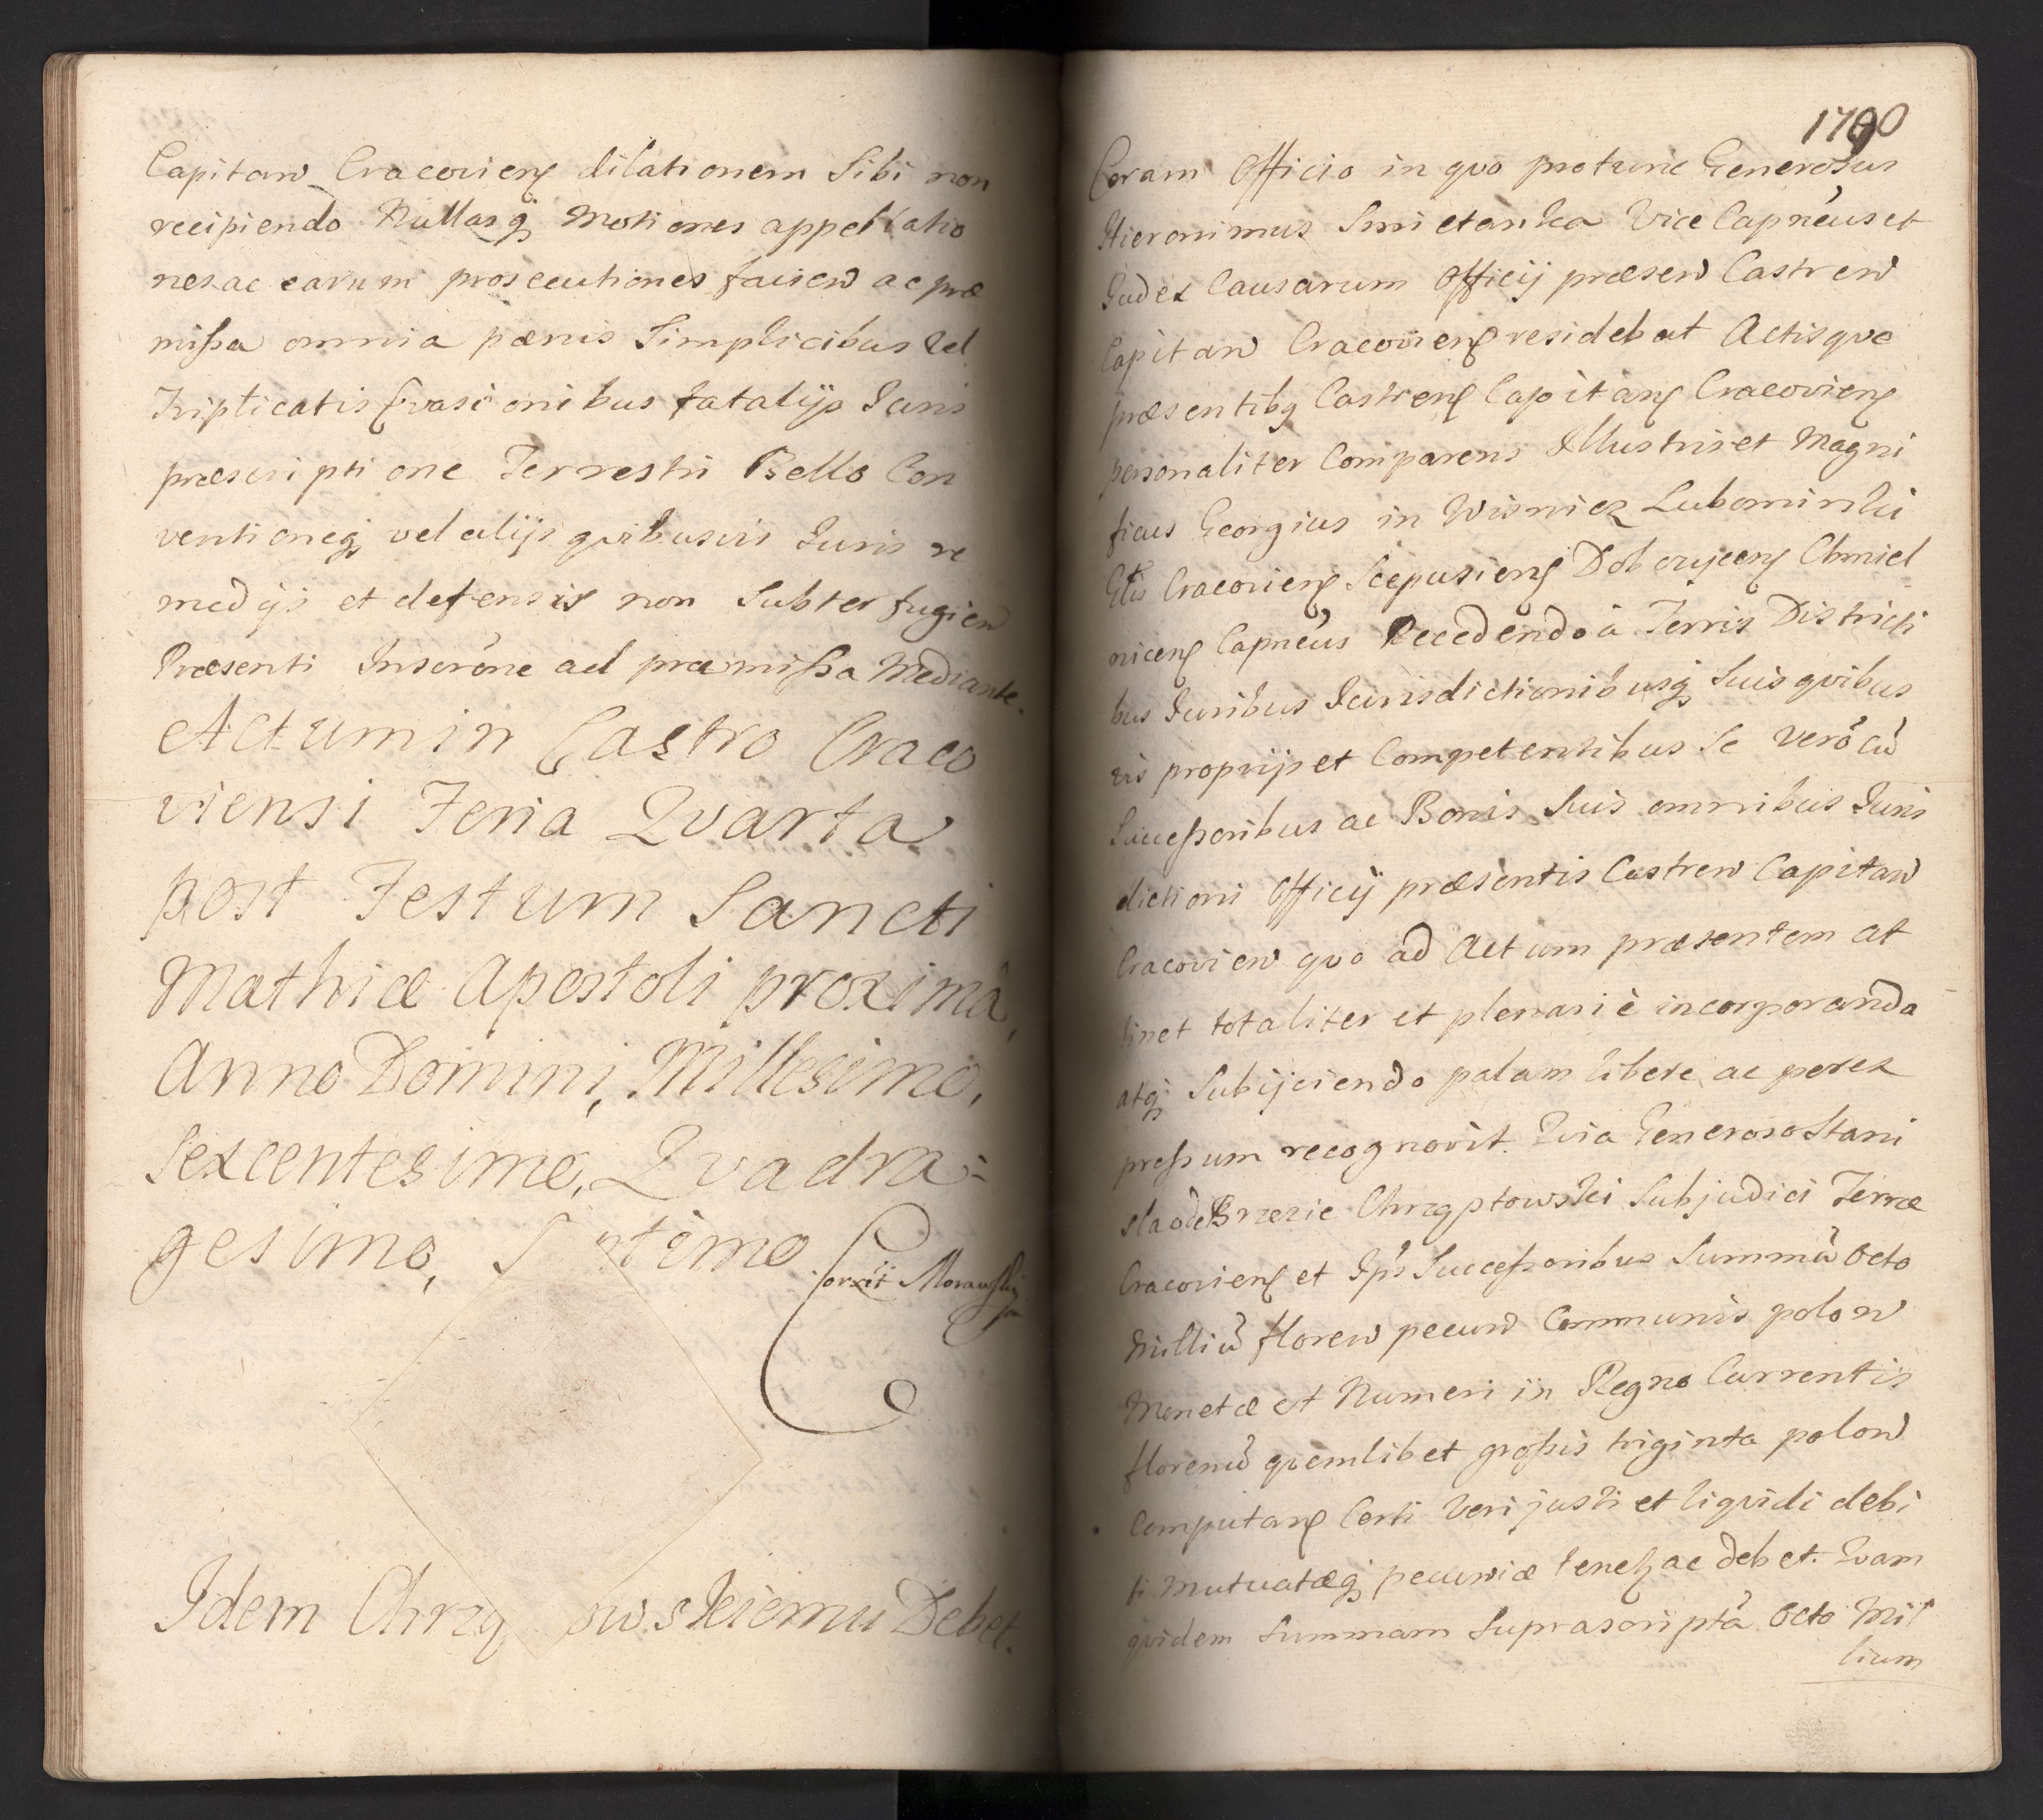 Capitan Cracovien dilationem Sibi non
recipiendo Nullasq; Motiones appellatio
nes ac earum prosecutiones facien ac præ
missa omnia pænis Simplicibus vel
Triplicatis Evasionibus fatalijs Juris
præscriptione Terrestri Bello Con
ventioneq; vel alijs qvibusvis Juris re
medijs et defensis non Subterfugien
Præsenti Inscrōne ad præmissa Mediante.
Actum in Castro Craco
viensi Feria Qvarta
post Festum Sancti
Mathiæ Apostoli proximâ,
Anno Domini, Millesimo,
Sexcentesimo, Qvadra=
gesimo, S ptimo
Correxit Morawski
Idem Chrzą owskiemu Debet.
1790
Coram Officio in qvo protunc Generosus
Hieronimus Smietanka Vice Capnēus et
Judex Causarum Officij præsen Castren
Capitan Cracovien residebat Actisqve
præsentibq Castren Capitan Cracovien
personaliter Comparens Illustris et Magni
ficus Georgius in Wisnicz Lubomirski
Gtis Cracovien Scepusien Dobczycen Chmiel
nicen Capnēus Recedendo à Terris Districti
bus Juribus Jurisdictionibusq; Suis qvibus
vis proprijs et Competentibus Se verō cū
Successoribus ac Bonis Suis omnibus Juris
dictioni Officij præsentis Castren Capitan
Cracovien qvo ad Actum præsentem at
tinet totaliter et plenariè incorporando
atq; Subijciendo palam libere ac perex
pressum recognovit. Qvia Generoso Stani
slao de Brzezie Chrząptowski Subjudici Terræ
Cracovien et Ips Successoribus Summū Octo
Milliū floren pecun Communis polon
Monetæ et Numeri in Regno Currentis
florenū qvemlibet grossis triginta polon
Computan Certi Veri justi et liqvidi debi
ti Mutuatæq; pecuniæ tenet ac debet. Qvam
qvidem Summam Suprascriptā Octo Mil
lium